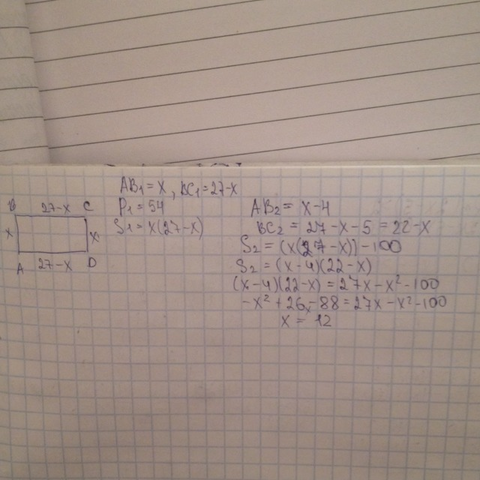 B 27-x C
x x
A 27-x D
AB₁ = x, BC₁ = 27-x
P₁ = 54
S₁ = x(27-x)
AB₂ = x-4
BC₂ = 27-x-5 = 22-x
S₂ = (x(27-x))-100
S₂ = (x-4)(22-x)
(x-4)(22-x) = 27x-x²-100
-x²+26x-88 = 27x-x²-100
x = 12